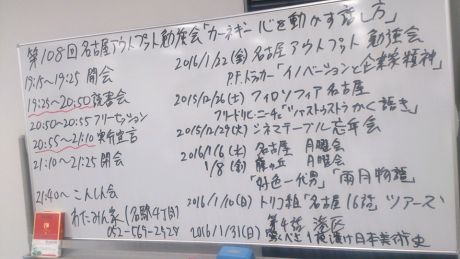 第108回名古屋アウトプット勉強会「カーネギー 心を動かす話し方」
19:15〜19:25 開会
19:25〜20:50 読書会
20:50〜20:55 フリーセッション
20:55〜21:10 実行宣言
21:10〜21:25 閉会
21:40〜 こんしん会
わたみん家(名駅4丁目)
052-569-2928
2016/1/22(金) 名古屋アウトプット勉強会
P.F.ドラッカー「イノベーションと企業家精神」
2015/12/26(土) フィロソフィア名古屋
フリードリヒ・ニーチェ「ツァラトゥストラかく語りき」
2015/12/29(火) シネマテーブル忘年会
2016/1/6(土) 名古屋 月曜会
1/8(金) 藤が丘 月曜会
「好色一代男」「雨月物語」
2016/1/10(日) トリコ組「名古屋16話」ツアーズ
第4話 港区
2016/1/31(日) 驚くべき一夜漬け日本美術史